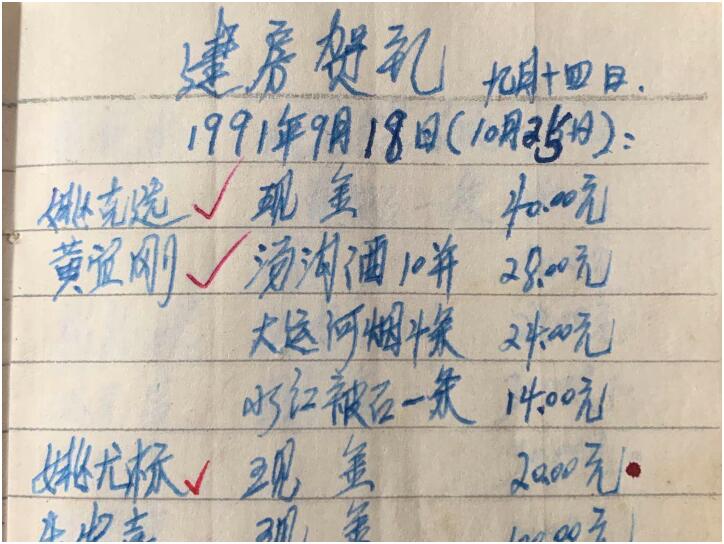 建房贺礼 九月十四日.
1991年9月18日(10月25日):
姚克选 现金 40.00元
黄宜刚 汤沟酒10并 28.00元
大运河烟4条 24.00元
水江被石一条 14.00元
姚尤标 现金 20.00元
现金 100.00元